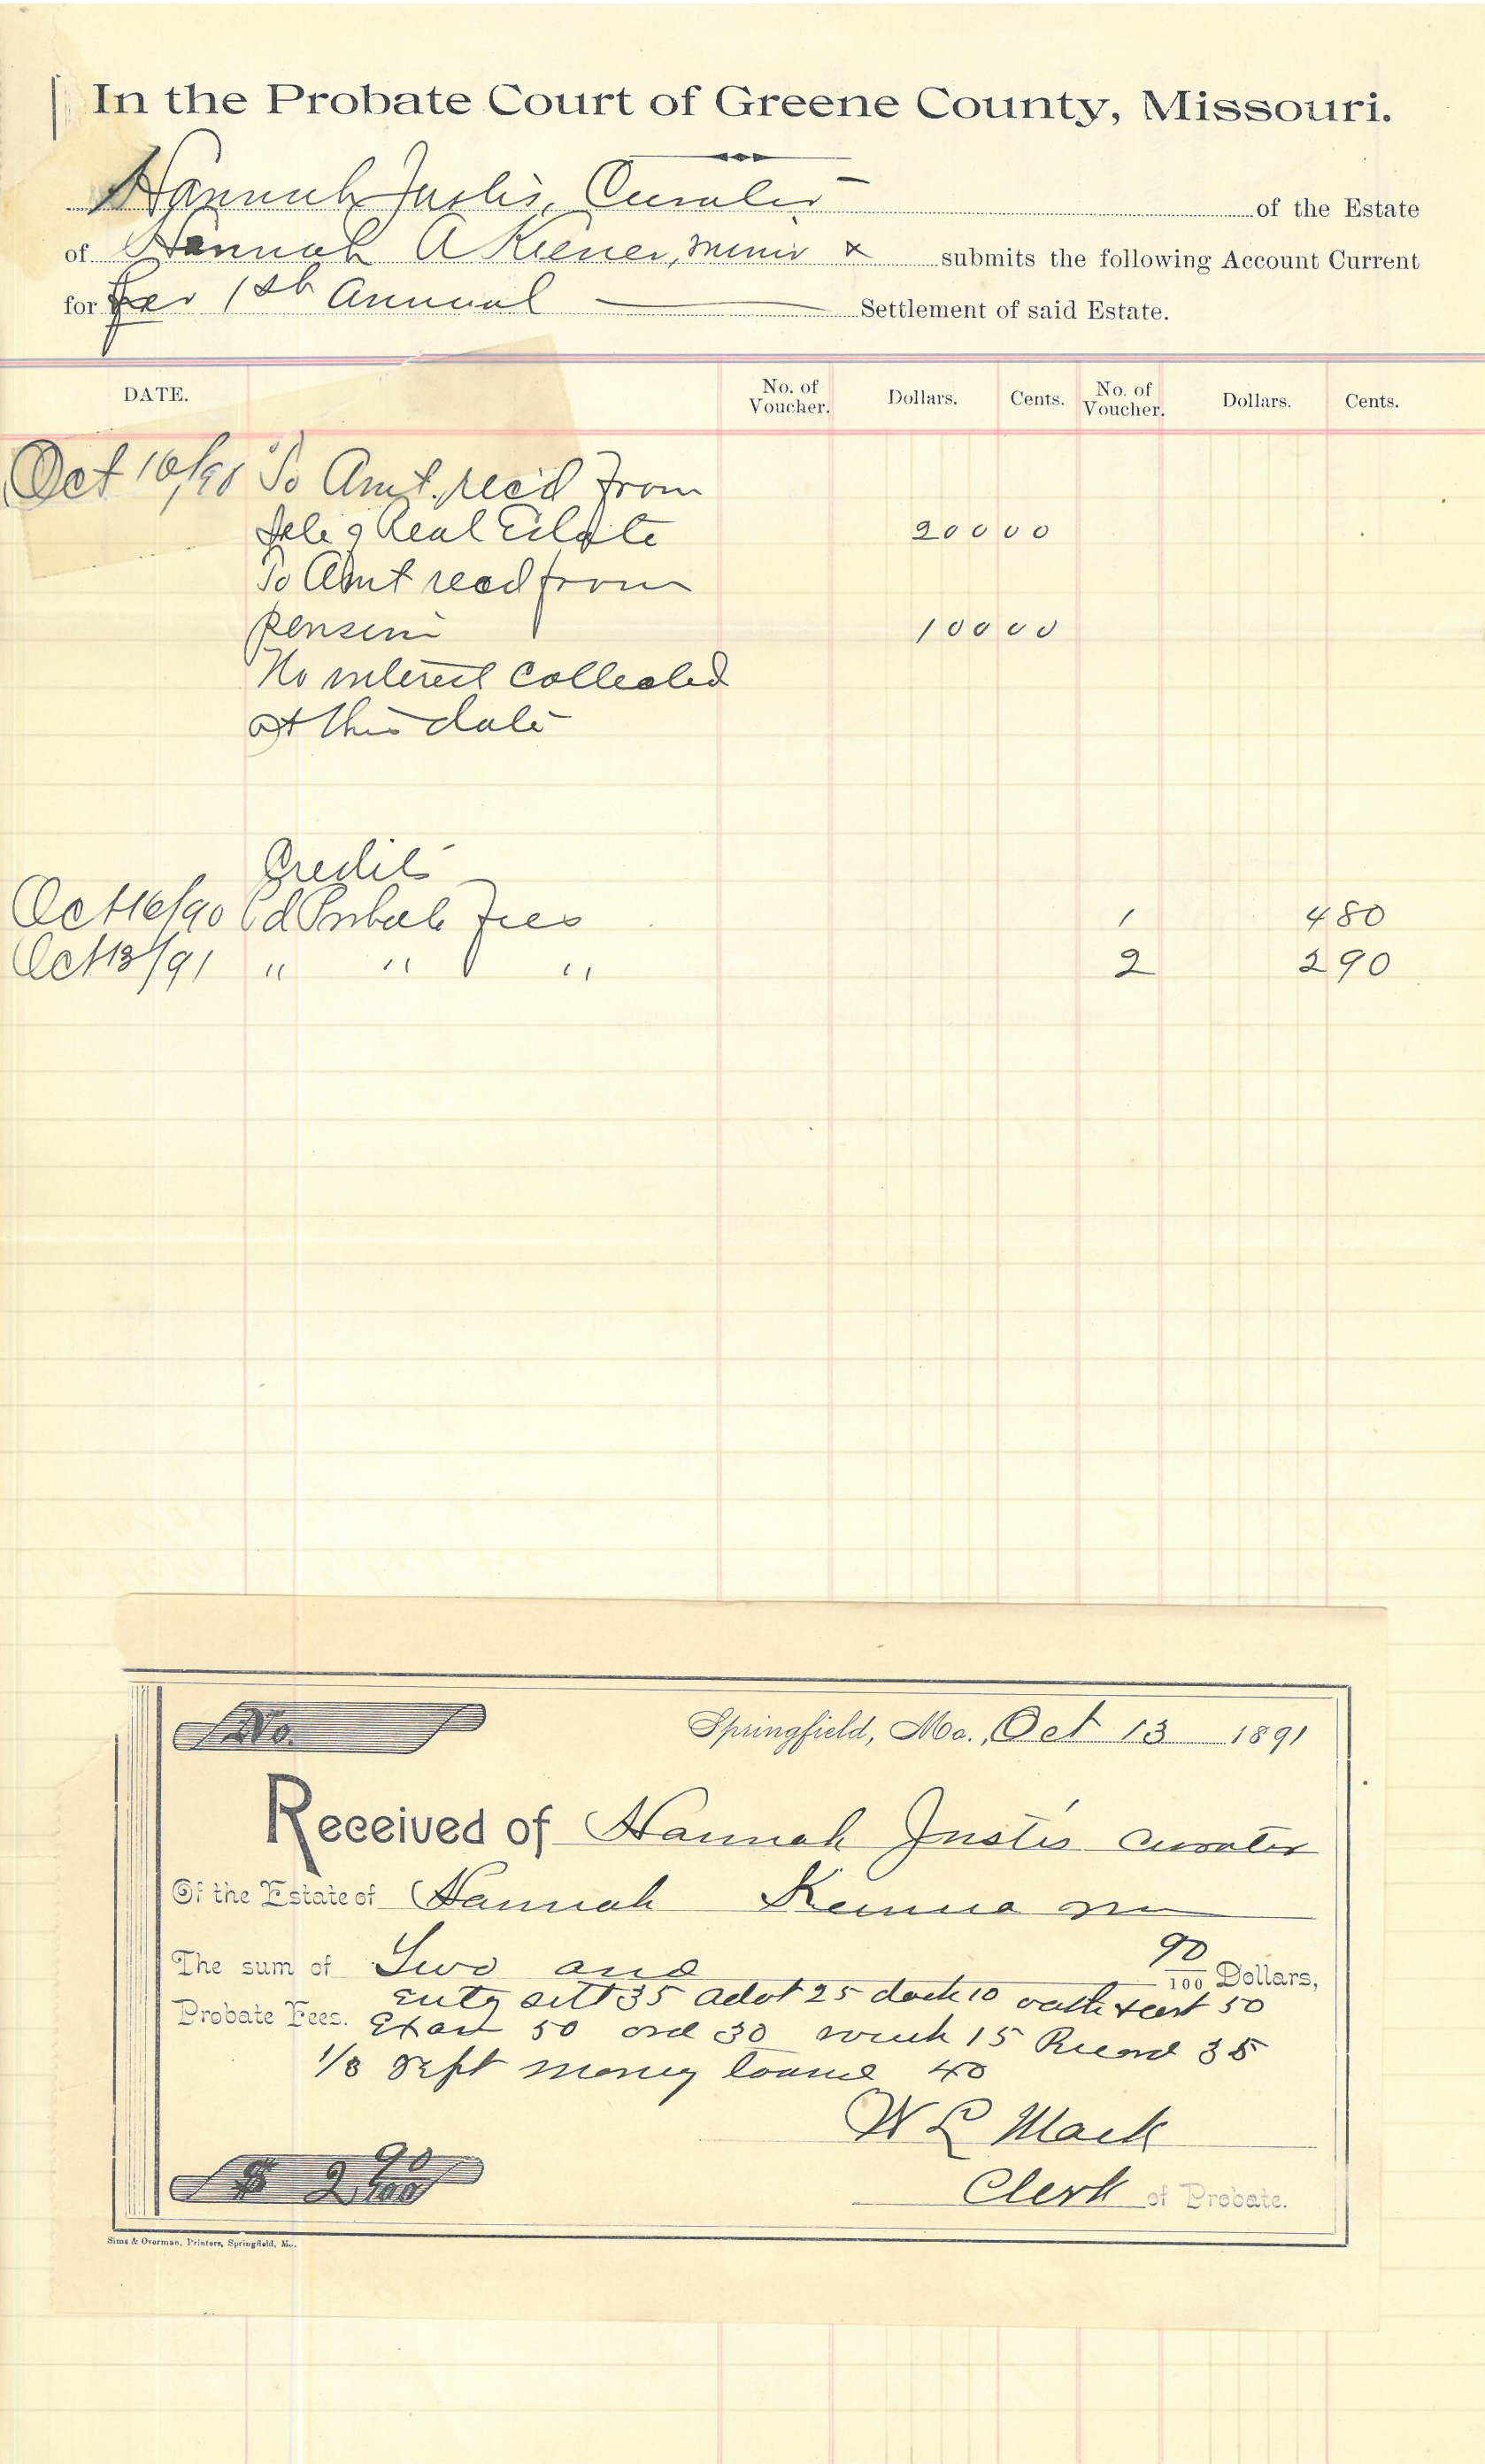 In the Probate Court of Greene County, Missouri.
Hannah Justis, Curator of the Estate
of Hannah A Kiener, minor submits the following Account Current
for her 1st Annual Settlement of said Estate.
DATE. No. of Voucher. Dollars. Cents. No. of Voucher. Dollars. Cents.
Oct 16/90 To Amt. rec'd From
Sale of Real Estate 200 00
To Amt recd from
pension 100 00
No interest collected
at this date
Credits
Oct 16/90 Pd Probate Fees 1 4 80
Oct 13/91 " " " 2 2 90
No.
Springfield, Mo., Oct 13 1891
Received of Hannah Justis curator
Of the Estate of Hannah
The sum of Two and 90/100 Dollars,
Probate Fees. entg sett 35 25 dock 10 oath & cert 50
50 ord 30 15 Record 35
1/3 money loaned 40
W L Mack
$ 2 90/100
Clerk of Probate.
Sims & Overman, Printers, Springfield, Mo.